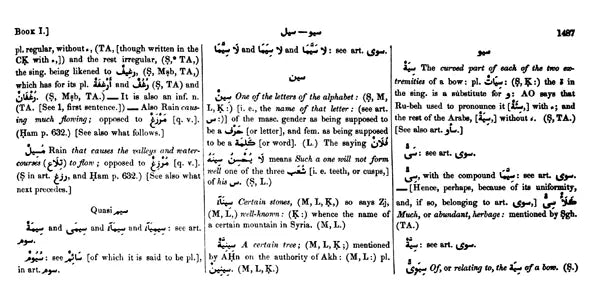 Book I.]
سيو — سيل
1487
pl. regular, without ء, (TA, [though written in the
CK with ء,]) and the rest irregular, (Ṣ,* TA,)
the sing. being likened to رَغِيفٌ, (Ṣ, Mṣb, TA,)
which has for its pl. رُغُفٌ (Ṣ, TA) and أَرْغِفَةٌ and
رُغْفَانٌ. (Ṣ, Mṣb, TA.) — It is also an inf. n.
(TA. [See 1, first sentence.]) — Also Rain caus-
ing much flowing; opposed to مُرْزِغٌ [q. v.].
(Ḥam p. 632.) [See also what follows.]
مُسِيلٌ Rain that causes the valleys and water-
courses (تِلَاع) to flow; opposed to مُرْزِغٌ [q. v.].
(Ṣ in art. رزغ, and Ḥam p. 632.) [See also what
next precedes.]
Quasi سيم
سِيمَةٌ and سِيمَى and سِيمَآءُ and سِيمِيَآءُ: see art.
سوم.
سُيُومٌ: see سَائِمٌ [of which it is said to be pl.],
in art. سوم.
لَا سِيَّمَا and لَا سِيَمَا and : see art. سوى.
سين
سِينٌ One of the letters of the alphabet: (Ṣ, M,
L, Ḳ:) [i. e., the name of that letter: (see art.
س:)] of the masc. gender as being supposed to
be a حَرْف [or letter], and fem. as being supposed
to be a كَلِمَة [or word]. (L.) The saying فُلَانٌ
لَا يُحْسِنُ سِينَهُ means Such a one will not form
well one of the three شُعَب [i. e. teeth, or cusps,]
of his س. (Ṣ, L.)
Certain stones, (M, L, Ḳ,) so says Zj,
(M, L,) well-known: (Ḳ:) whence the name of
a certain mountain in Syria. (M, L.)
A certain tree; (M, L, Ḳ;) mentioned
by AḤn on the authority of Akh: (M, L:) pl.
سِينِينٌ. (M, L, Ḳ.)
سيو
سِيَةٌ The curved part of each of the two ex-
tremities of a bow: pl. سِيَاتٌ: (Ṣ, Ḳ:) the ة in
the sing. is a substitute for و: AO says that
Ru-beh used to pronounce it [سِئَةٌ] with ء; and
the rest of the Arabs, [سِيَةٌ] without ء. (Ṣ, TA.)
[See also art. سأو.]
: see art. سوى.
سِىٌّ, with the compound لَا سِيَّمَا: see art. سوى.
— [Hence, perhaps, because of its uniformity,
and, if so, belonging to art. سوى,] كَلَأٌ سِىٌّ
Much, or abundant, herbage: mentioned by Ṣgh.
(TA.)
: see art. سوى.
سِيَوِىٌّ Of, or relating to, the سِيَة of a bow. (Ṣ.)